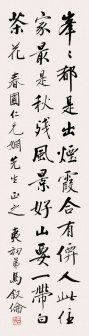 峯峯都是出烟霞合有儕人此住
家最是秋残風景好山要一帶白
茶花 春圃仁兄嫺先生正之 夷初弟馬叙倫